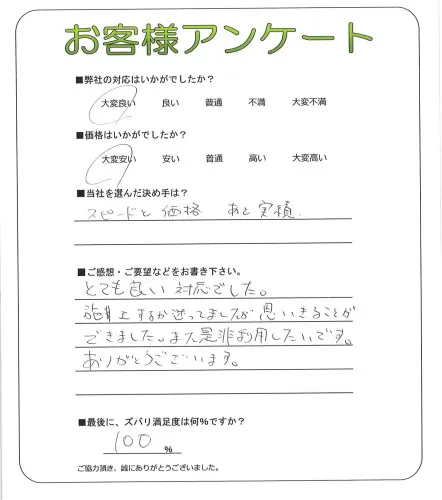 お客様アンケート
■弊社の対応はいかがでしたか？
大変良い 良い 普通 不満 大変不満
■価格はいかがでしたか？
大変安い 安い 普通 高い 大変高い
■当社を選んだ決め手は？
スピードと 価格 あと 実績.
■ご感想・ご要望などをお書き下さい。
とても良い対応でした。
するか迷ってましたが 思いきることが
できました。また是非利用したいです。
ありがとうございます。
■最後に、ズバリ満足度は何％ですか？
100 %
ご協力頂き、誠にありがとうございました。